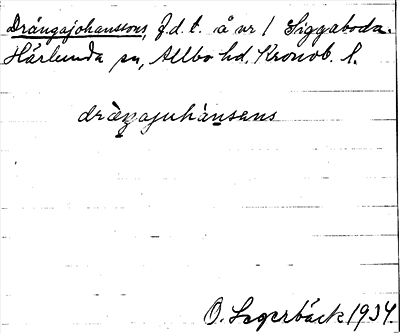 Drängajohanssons, f.d.t. å nr 1 Siggaboda.
Härlunda sn, Allbo hd. Kronob. l.
dràŋajuhànsens
O. Segerbäck 1934.